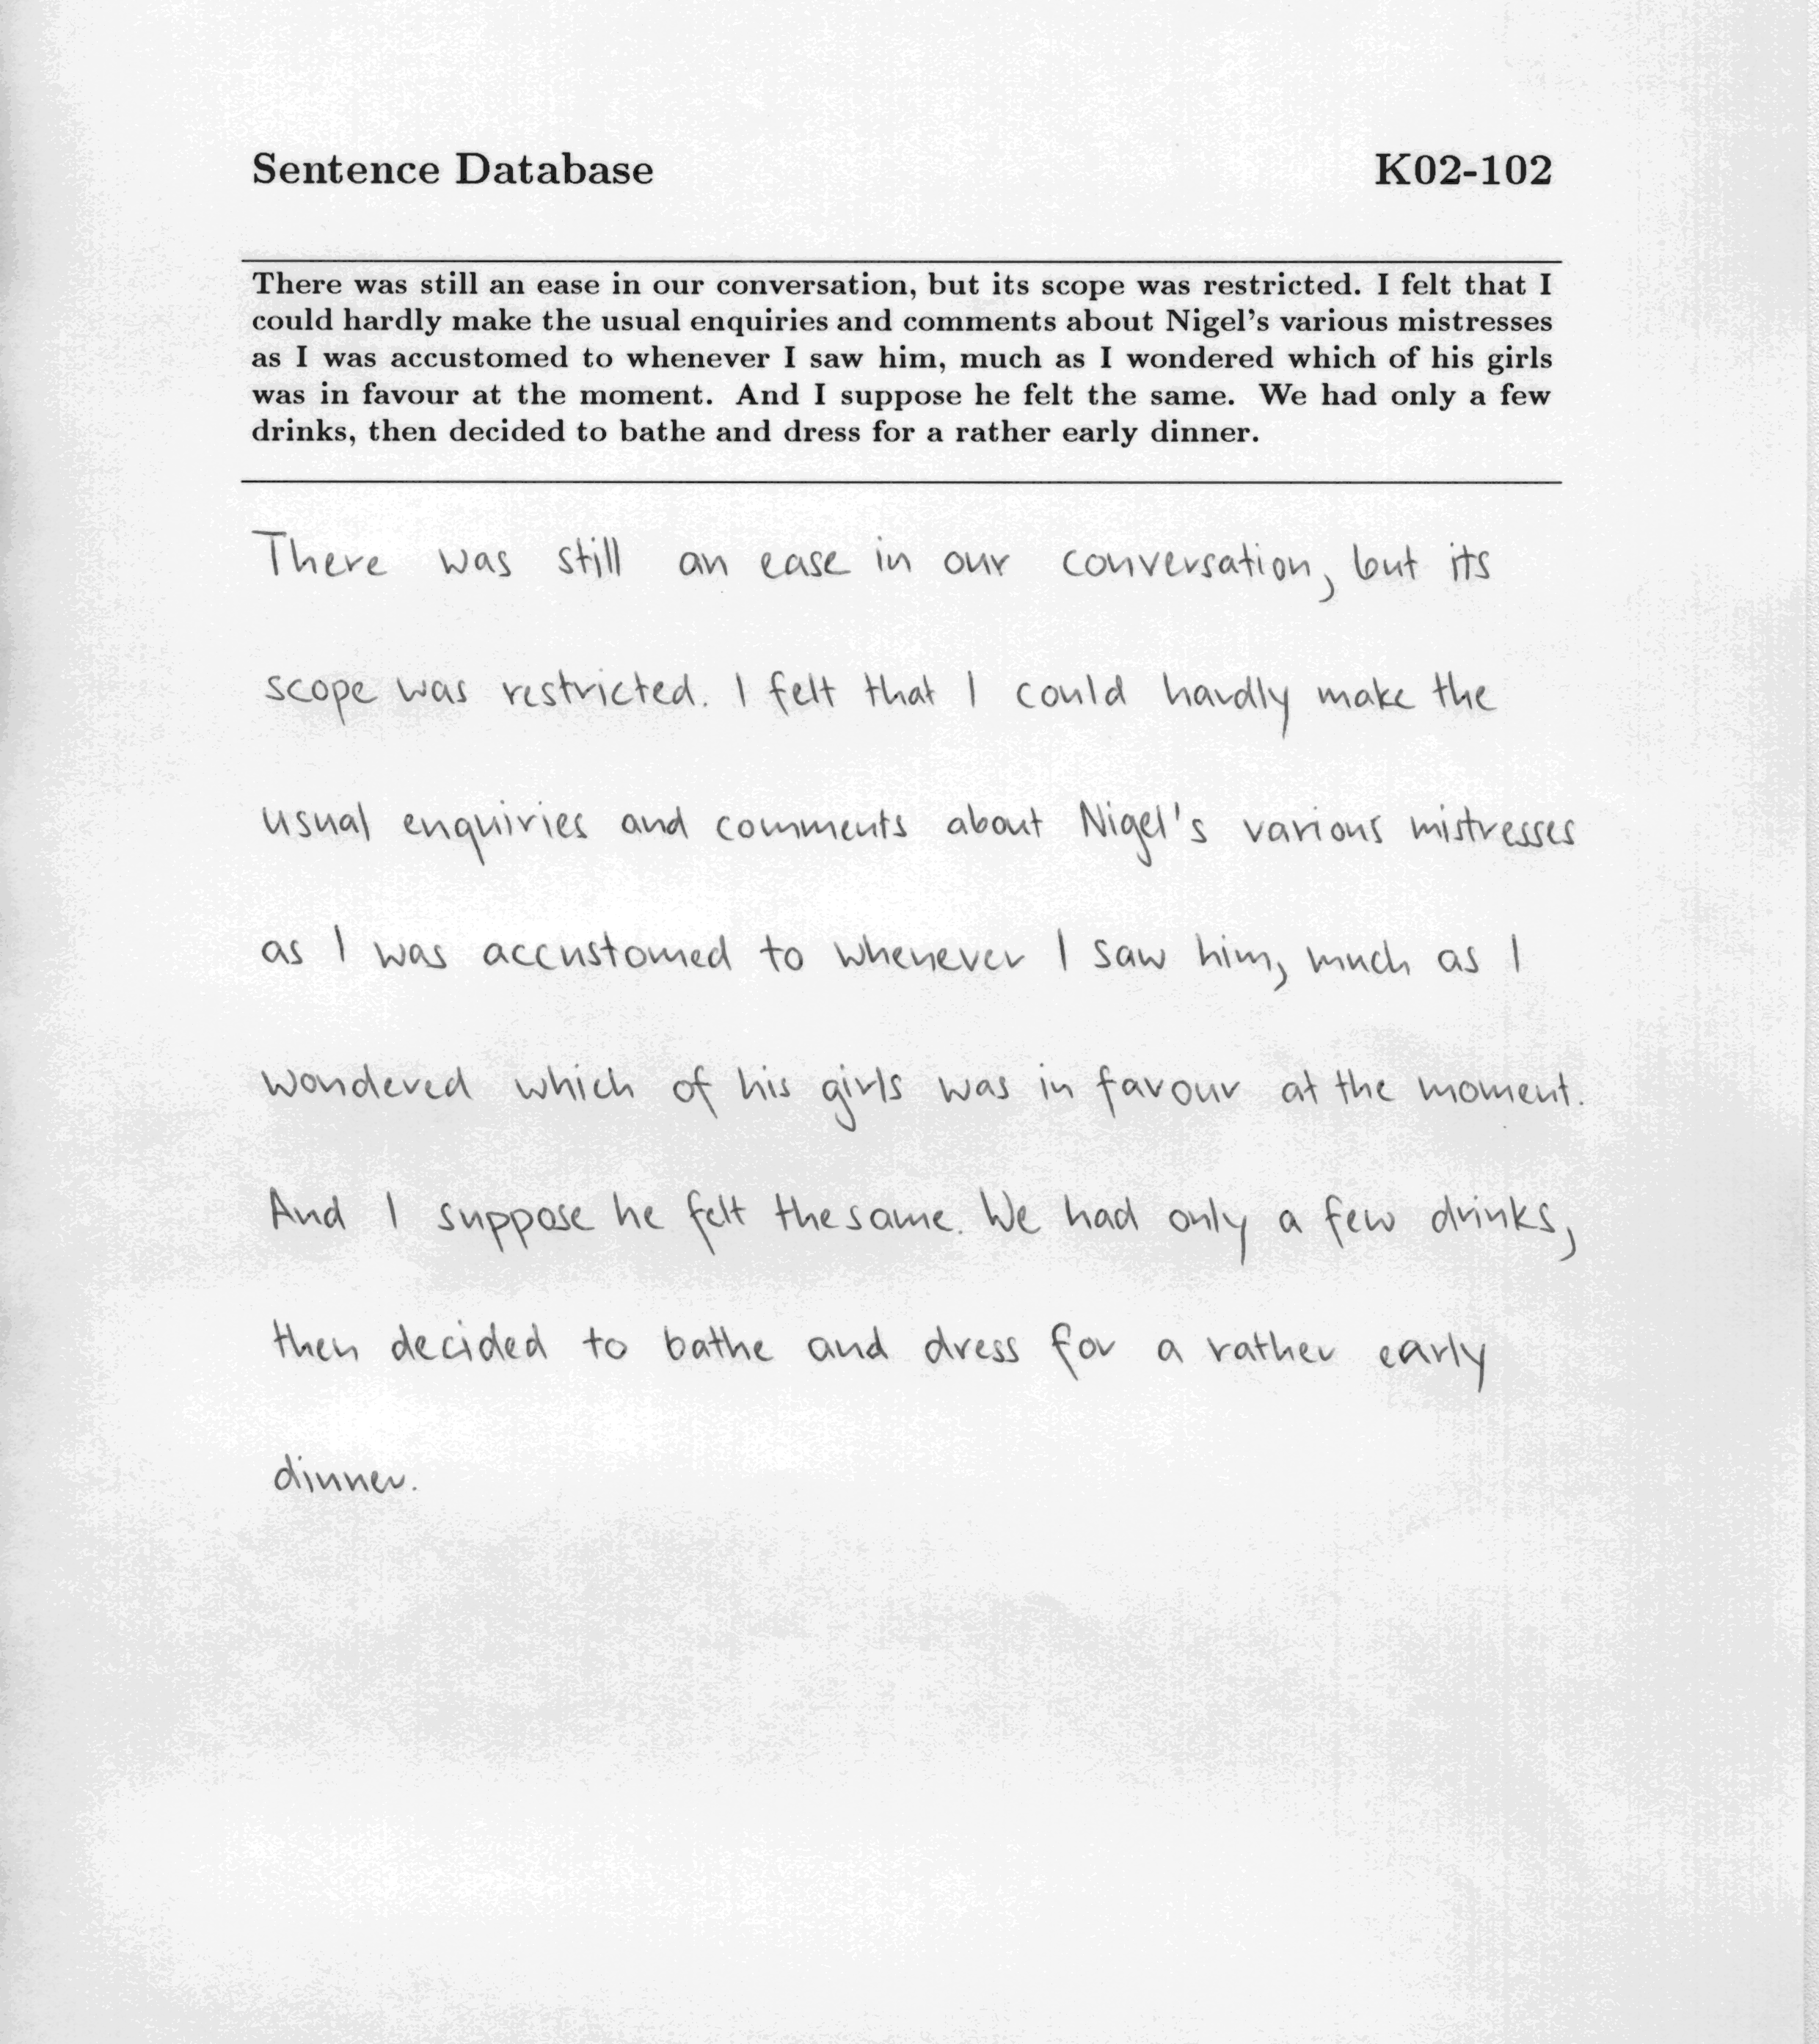 Sentence Database K02-102
There was still an ease in our conversation, but its scope was restricted. I felt that I
could hardly make the usual enquiries and comments about Nigel's various mistresses
as I was accustomed to whenever I saw him, much as I wondered which of his girls
was in favour at the moment. And I suppose he felt the same. We had only a few
drinks, then decided to bathe and dress for a rather early dinner.
There was still an ease in our conversation, but its
scope was restricted. I felt that I could hardly make the
usual enquiries and comments about Nigel's various mistresses
as I was accustomed to whenever I saw him, much as I
wondered which of his girls was in favour at the moment.
And I suppose he felt the same. We had only a few drinks,
then decided to bathe and dress for a rather early
dinner.